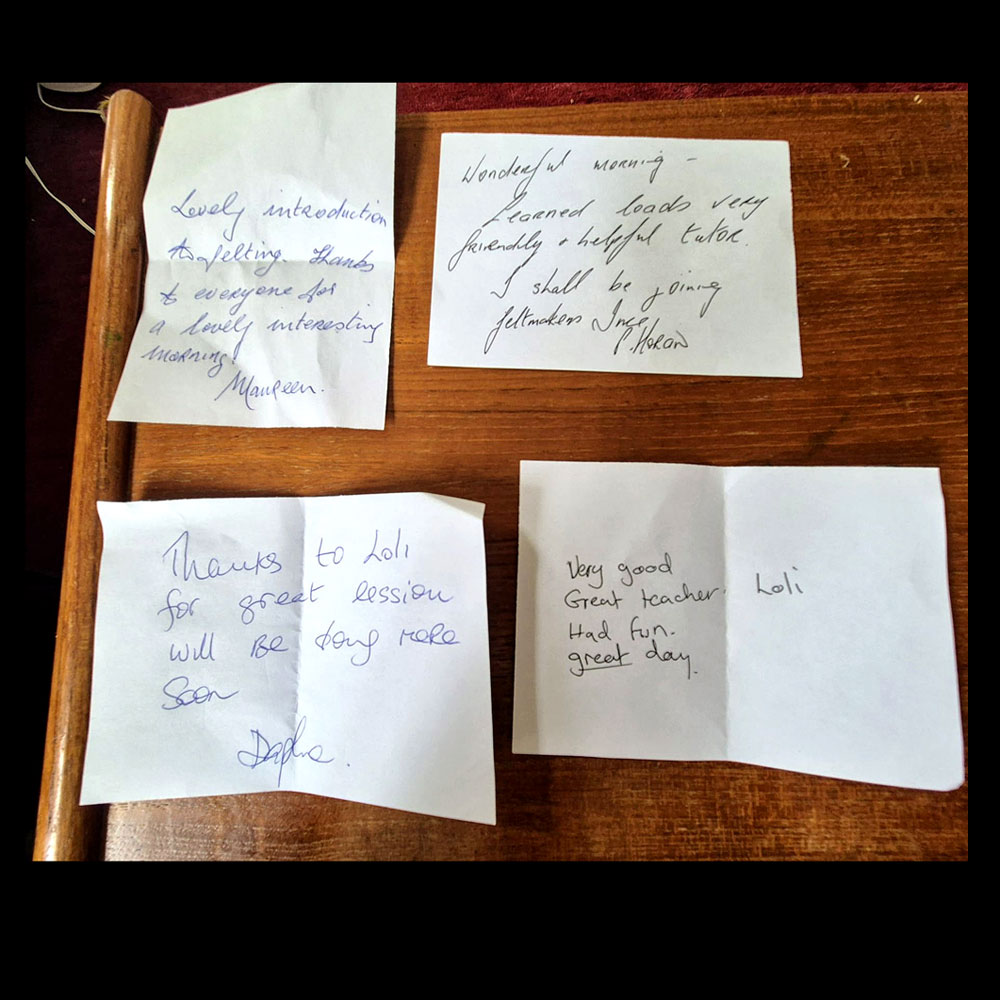 Lovely introduction
to felting. Thanks
to everyone for
a lovely interesting
morning.
Maureen.
Wonderful morning -
Learned loads very
friendly & helpful tutor.
I shall be joining
feltmakers
P. Horan
Thanks to Loli
for great lession
will Be doing more
Soon
Daphne.
Very good
Great teacher. Loli
Had fun.
great day.